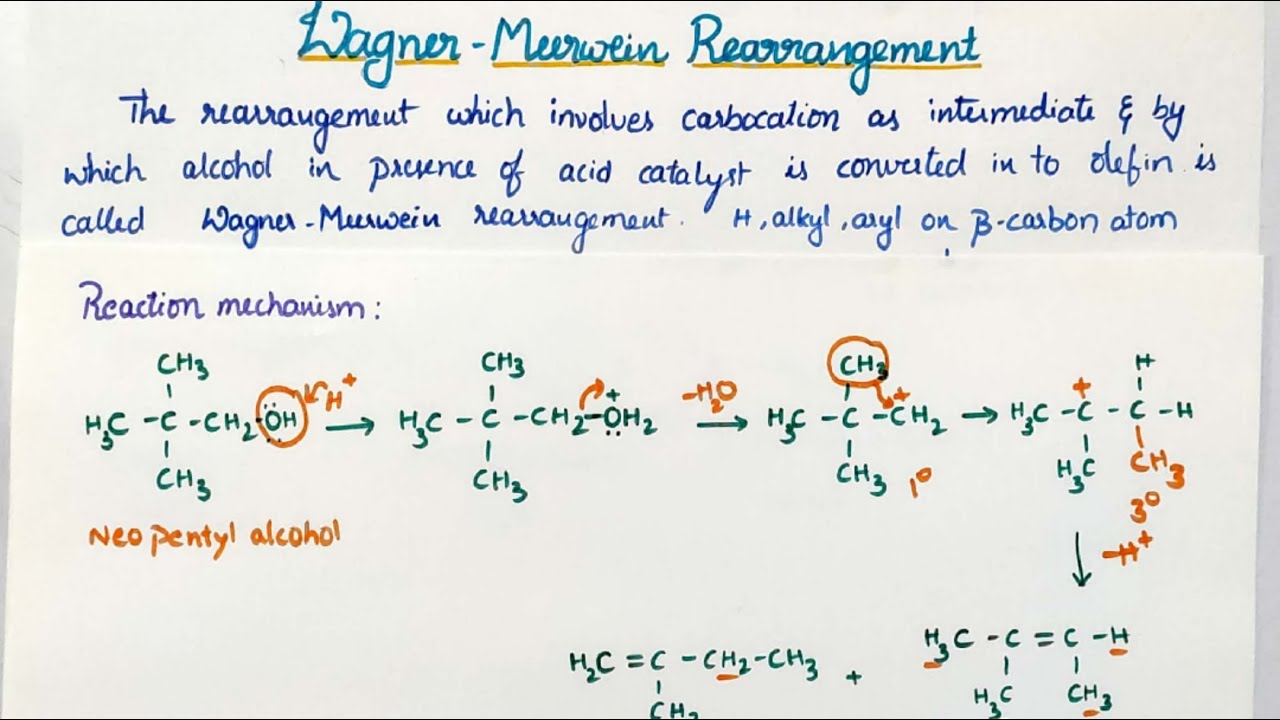 Wagner-Meerwein Rearrangement
The rearrangement which involves carbocation as intermediate & by
which alcohol in presence of acid catalyst is converted in to olefin is
called Wagner-Meerwein rearrangement. H, alkyl, aryl on β-carbon atom
Reaction mechanism:
CH3 CH3 CH3 H
H3C -C -CH2-ÖH H+ → H3C - C -CH2-ÖH2 + -H2O → H3C - C -CH2 + → H3C -C+ - C -H
CH3 CH3 CH3 1° H3C CH3
Neo pentyl alcohol 3°
↓ -H+
H2C =C -CH2-CH3 + H3C -C =C -H
CH3 H3C CH3